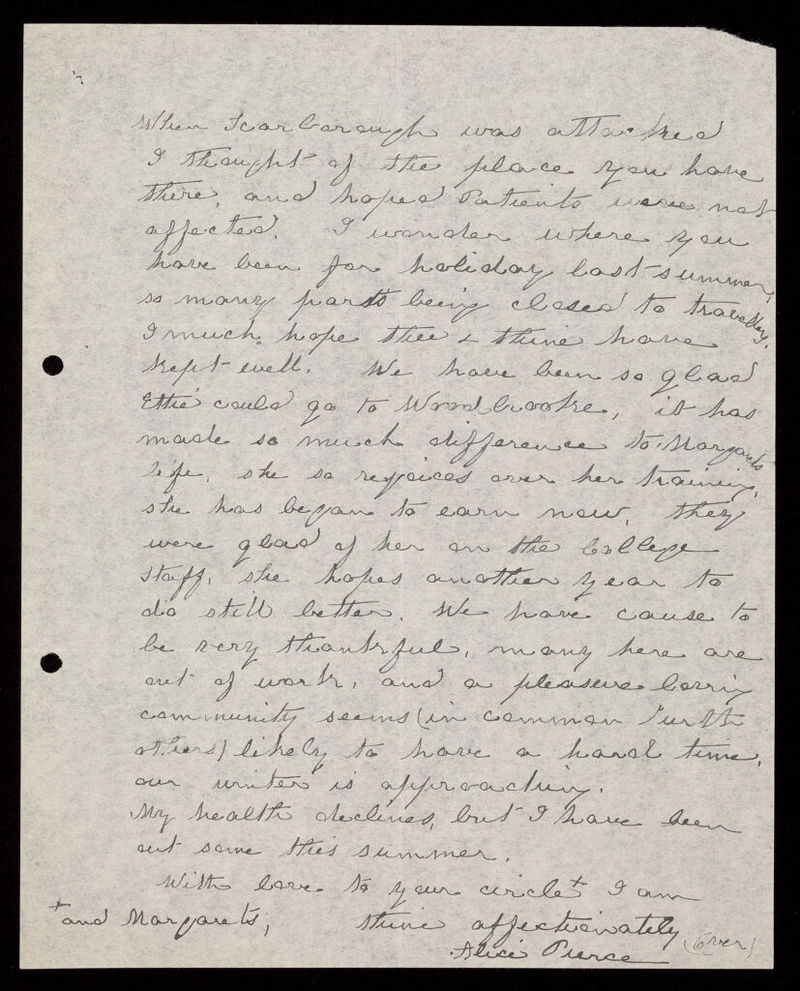 When Scarborough was attacked
I thought of the place you have
there, and hoped Patients were not
affected. I wonder where you
have been for holiday last summer,
so many parts being closed to travellers.
I much hope thee & thine have
kept well. We have been so glad
Ettie could go to Woodbrooke, it has
made so much difference to Margarets
life, she so rejoices over her training,
she has began to earn now, they
were glad of her on the College
staff, she hopes another year to
do still better. We have cause to
be very thankful, many here are
out of work, and a pleasure loving
community seems (in common with
others) likely to have a hard time,
our winter is approaching.
My health declines, but I have been
out some this summer.
With love to your circle + I am
+ and Margarets, thine affectionately
Alice Pierce (Over)